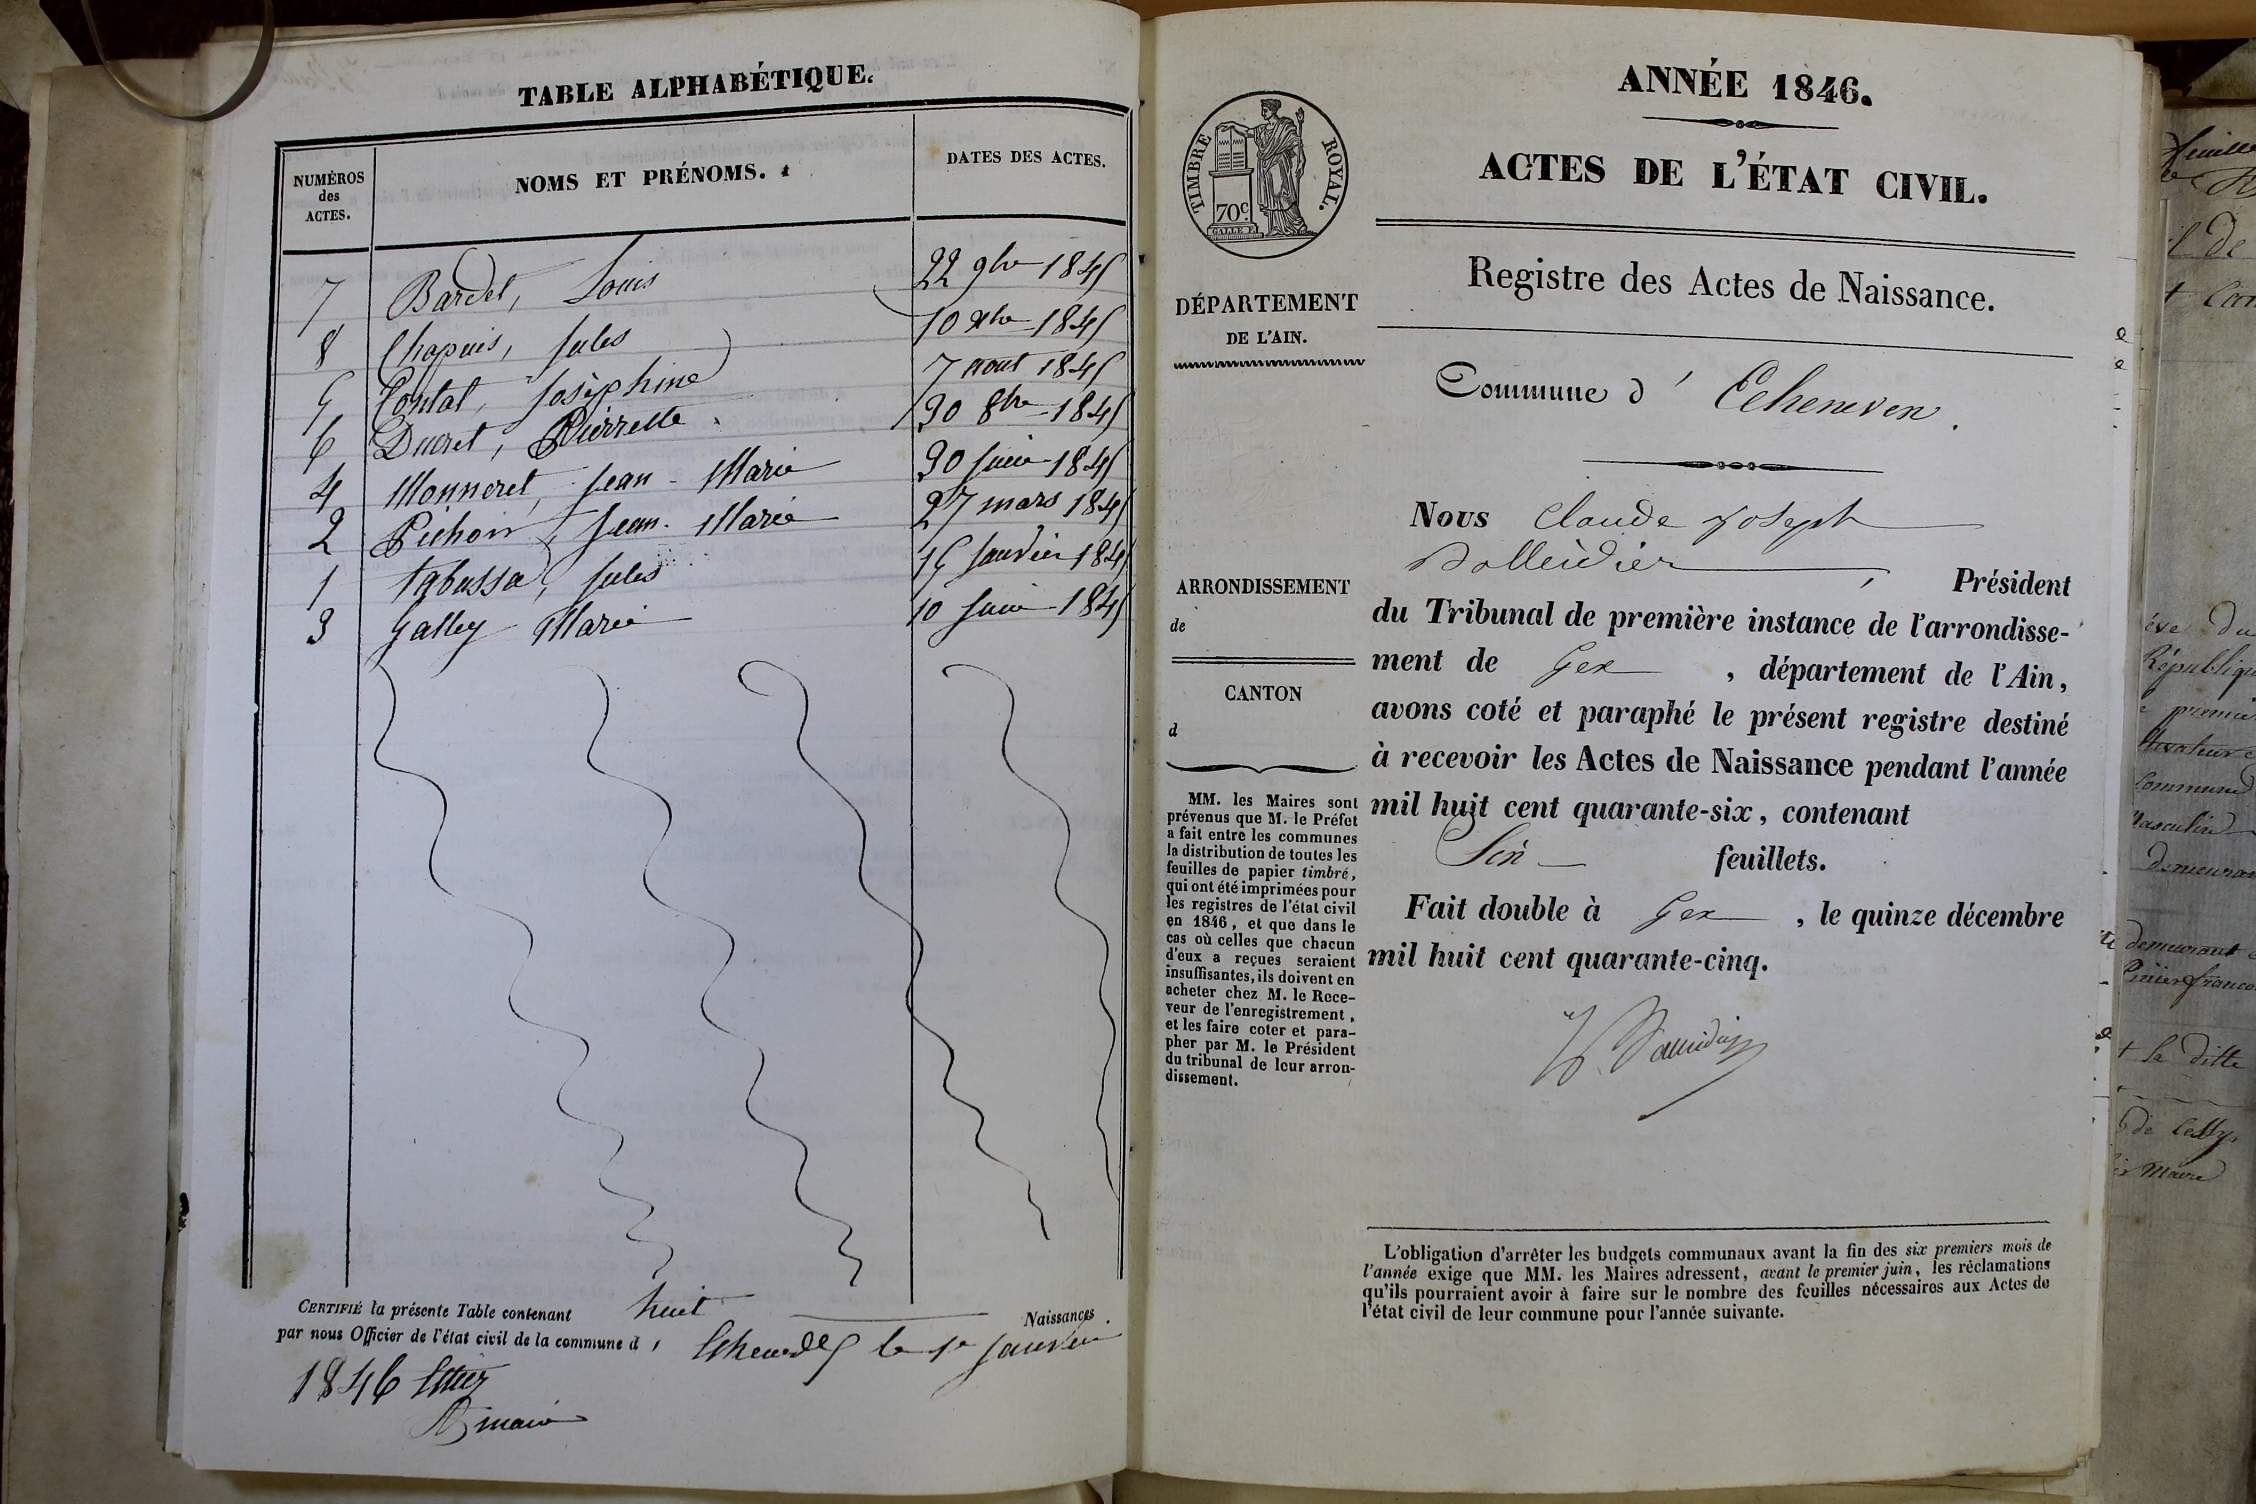 TABLE ALPHABÉTIQUE.
NUMÉROS
des
ACTES.
NOMS ET PRÉNOMS.
DATES DES ACTES.
7 Bardet, Louis 22 9bre 1845
8 Chapuis, Jules 10 xbre 1845
5 Contat, Josèphine 7 aout 1845
6 Ducret, Pierrette 30 8bre 1845
4 Monneret, Jean-Marie 30 juin 1845
2 Pichon, Jean-Marie 27 mars 1845
1 Tabussa, Jules 15 janvier 1845
3 Galley Marie 10 juin 1845
CERTIFIÉ la présente Table contenant huit Naissances
par nous Officier de l'état civil de la commune d' le 1er janvier
1846
maire
ANNÉE 1846.
ACTES DE L'ÉTAT CIVIL.
TIMBRE ROYAL.
70c.
Registre des Actes de Naissance.
DÉPARTEMENT
DE L'AIN.
Commune d' Echenevex.
Nous Claude Joseph
Balleidier, Président
du Tribunal de première instance de l'arrondisse-
ment de Gex, département de l'Ain,
avons coté et paraphé le présent registre destiné
à recevoir les Actes de Naissance pendant l'année
mil huit cent quarante-six, contenant
Six feuillets.
Fait double à Gex, le quinze décembre
mil huit cent quarante-cinq.
ARRONDISSEMENT
de
CANTON
d
MM. les Maires sont
prévenus que M. le Préfet
a fait entre les communes
la distribution de toutes les
feuilles de papier timbré,
qui ont été imprimées pour
les registres de l'état civil
en 1846, et que dans le
cas où celles que chacun
d'eux a reçues seraient
insuffisantes, ils doivent en
acheter chez M. le Rece-
veur de l'enregistrement,
et les faire coter et para-
pher par M. le Président
du tribunal de leur arron-
dissement.
L'obligation d'arrêter les budgets communaux avant la fin des six premiers mois de
l'année exige que MM. les Maires adressent, avant le premier juin, les réclamations
qu'ils pourraient avoir à faire sur le nombre des feuilles nécessaires aux Actes de
l'état civil de leur commune pour l'année suivante.